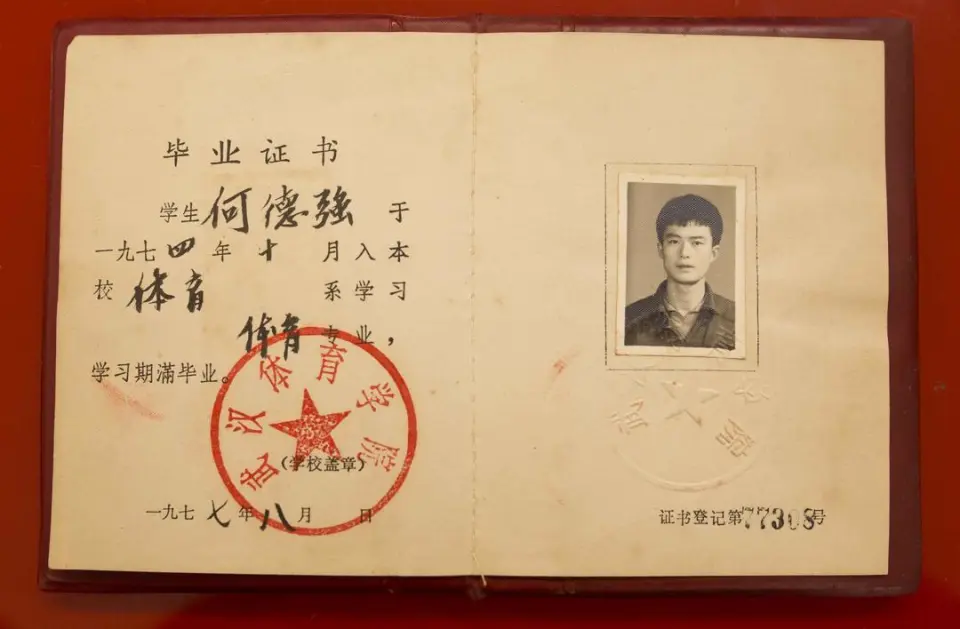 毕业证书
学生何德强于
一九七四年十月入本
校体育系学习
体育专业，
学习期满毕业。
武汉体育学院
(学校盖章)
一九七七年八月 日
武 院
证书登记第77308号